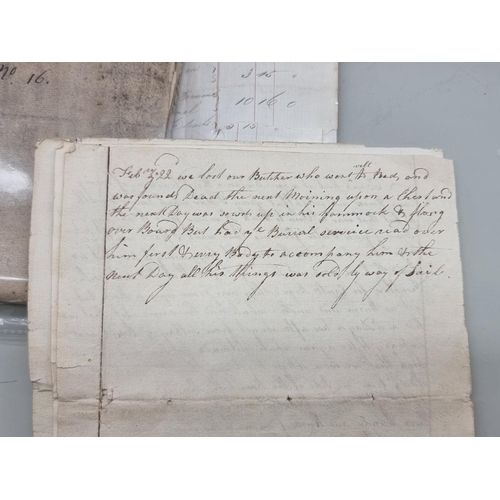 No. 16.
3 15 0
10 16 0
Feb.ry 22 we lost our Butcher who went well to Bed, and
was found Dead the next Morning upon a Chest and
the next Day was sowed up in his hammock & flung
over Board But had ye Burial service read over
him first & every Body to accompany him & the
next Day all his things was sold, by way of Sail.